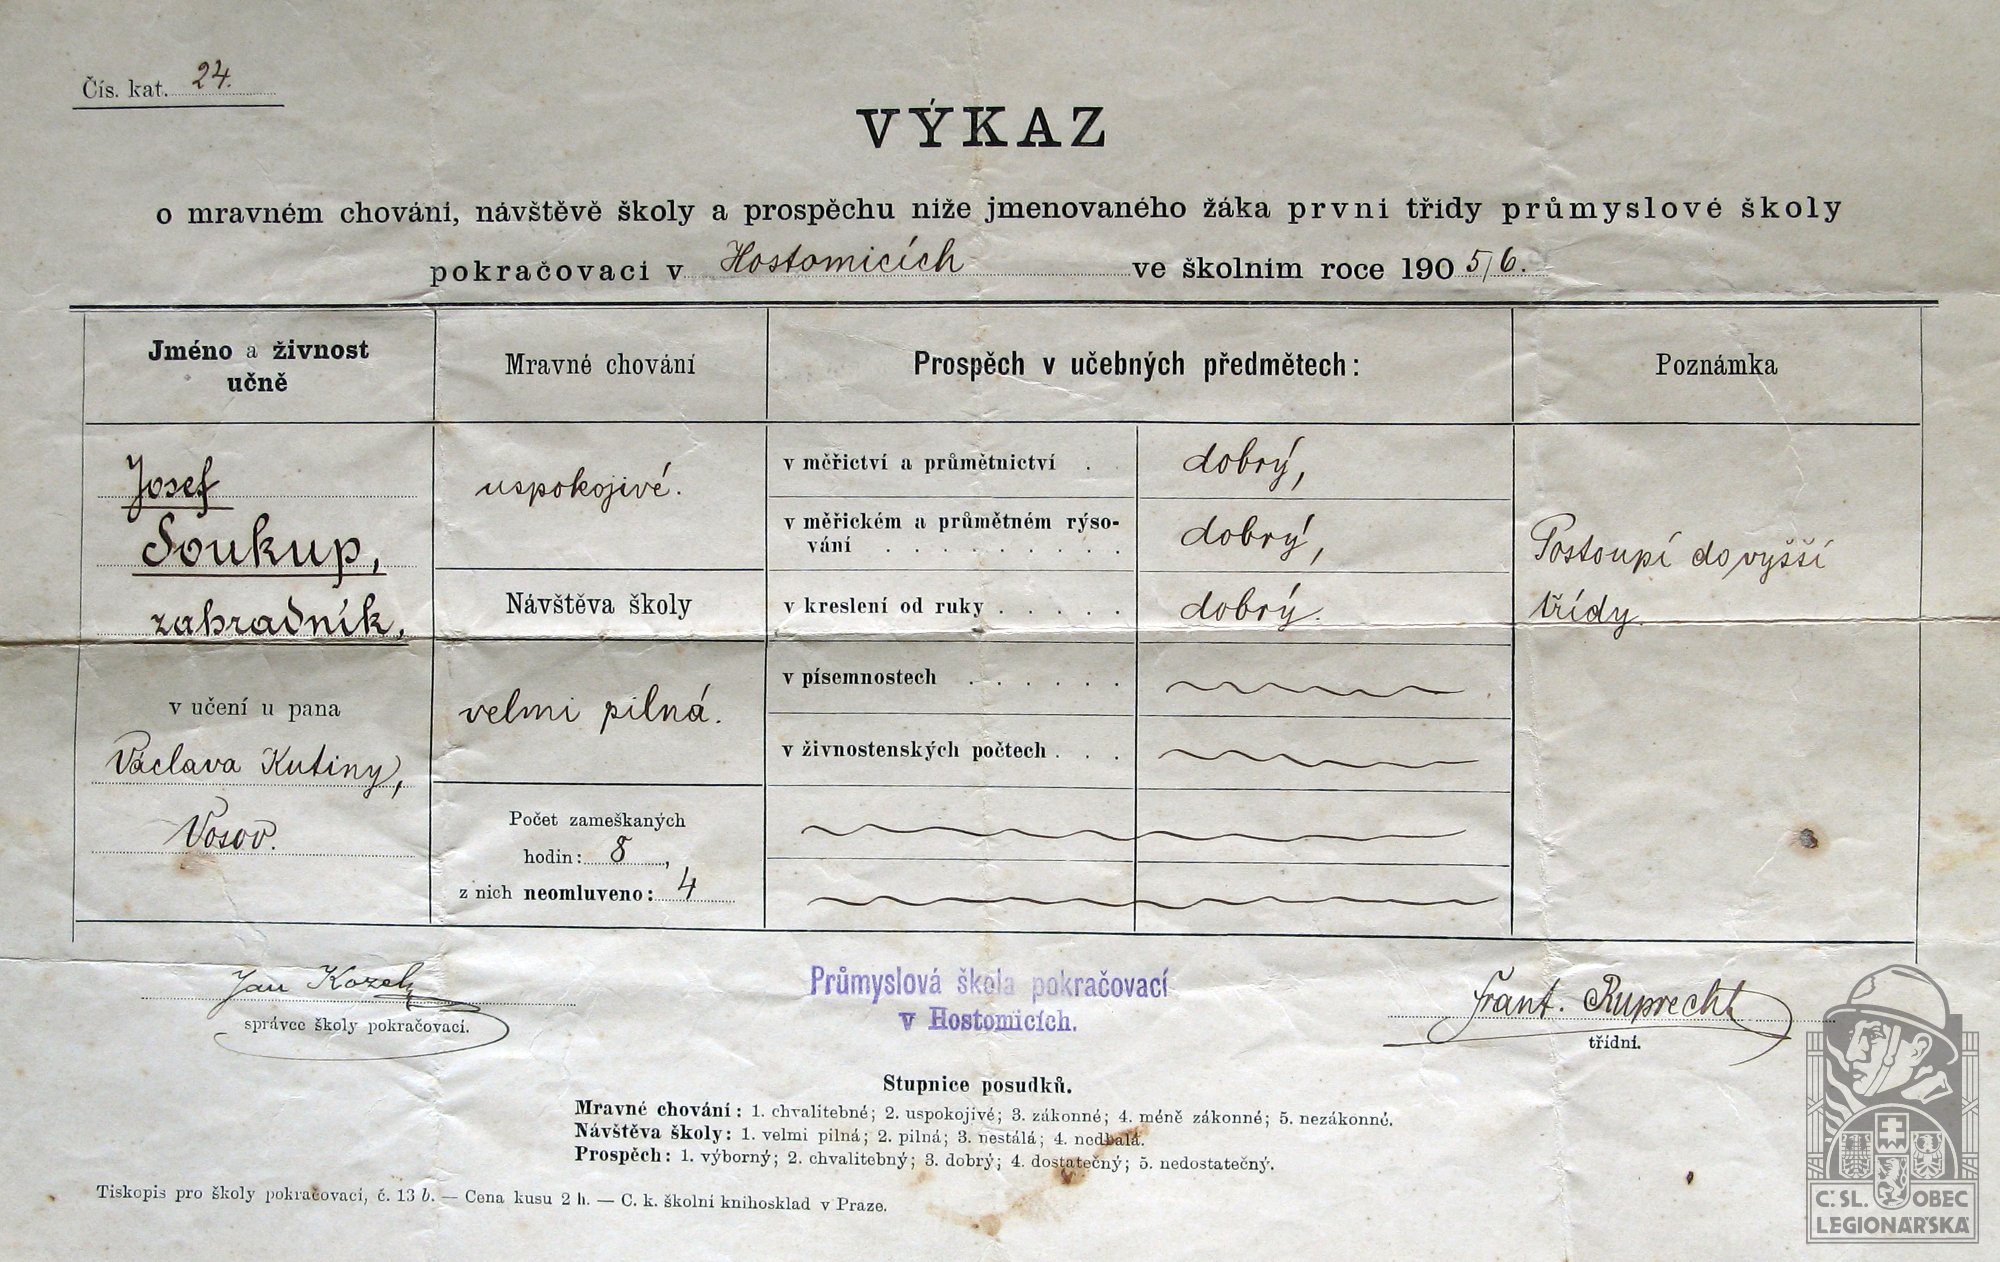 Čís. kat. 24.
VÝKAZ
o mravném chování, návštěvě školy a prospěchu níže jmenovaného žáka první třídy průmyslové školy
pokračovací v Hostomicích ve školním roce 1905/6.
Jméno a živnost
učně
Mravné chování
Prospěch v učebných předmětech:
Poznámka
Josef
Soukup,
zahradník,
v učení u pana
Václava Kutiny,
Vosov.
uspokojivé.
Návštěva školy
velmi pilná.
Počet zameškaných
hodin: 8,
z nich neomluveno: 4
v měřictví a průmětnictví . dobrý,
v měřickém a průmětném rýso-
vání . . . . . . . . . dobrý,
v kreslení od ruky . . . . . dobrý.
v písemnostech . . . . . .
v živnostenských počtech . . .
Postoupí do vyšší
třídy.
Jan Kozel
správce školy pokračovací.
Průmyslová škola pokračovací
v Hostomicích.
Frant. Ruprecht
třídní.
Stupnice posudků.
Mravné chování: 1. chvalitebné; 2. uspokojivé; 3. zákonné; 4. méně zákonné; 5. nezákonné.
Návštěva školy: 1. velmi pilná; 2. pilná; 3. nestálá; 4. nedbalá.
Prospěch: 1. výborný; 2. chvalitebný; 3. dobrý; 4. dostatečný; 5. nedostatečný.
Tiskopis pro školy pokračovací, č. 13 b. — Cena kusu 2 h. — C. k. školní knihosklad v Praze.
ČSL. OBEC
LEGIONÁŘSKÁ